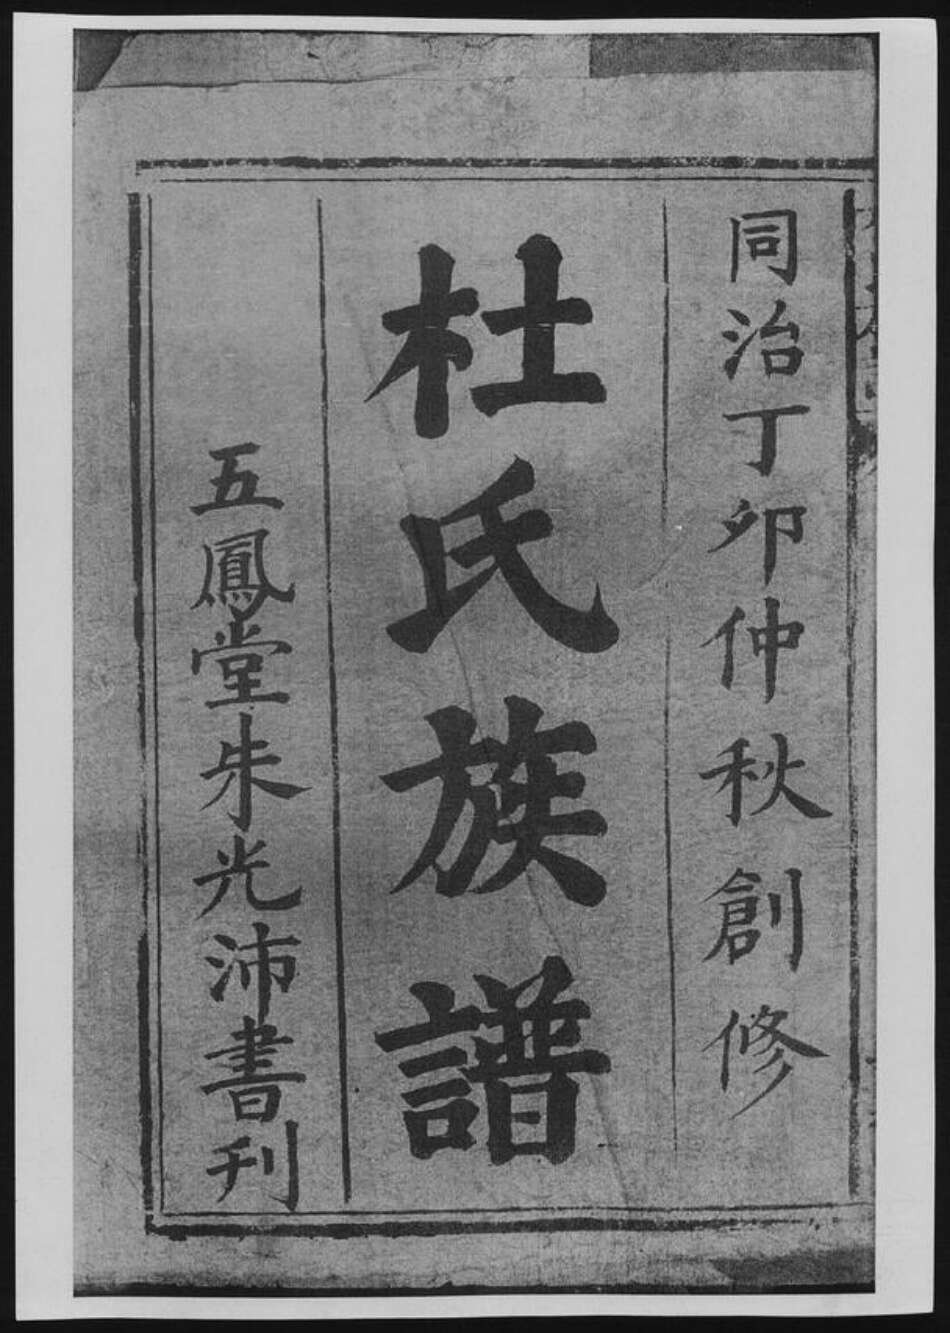 同治丁卯仲秋創修
杜氏族譜
五鳳堂朱光沛書刊